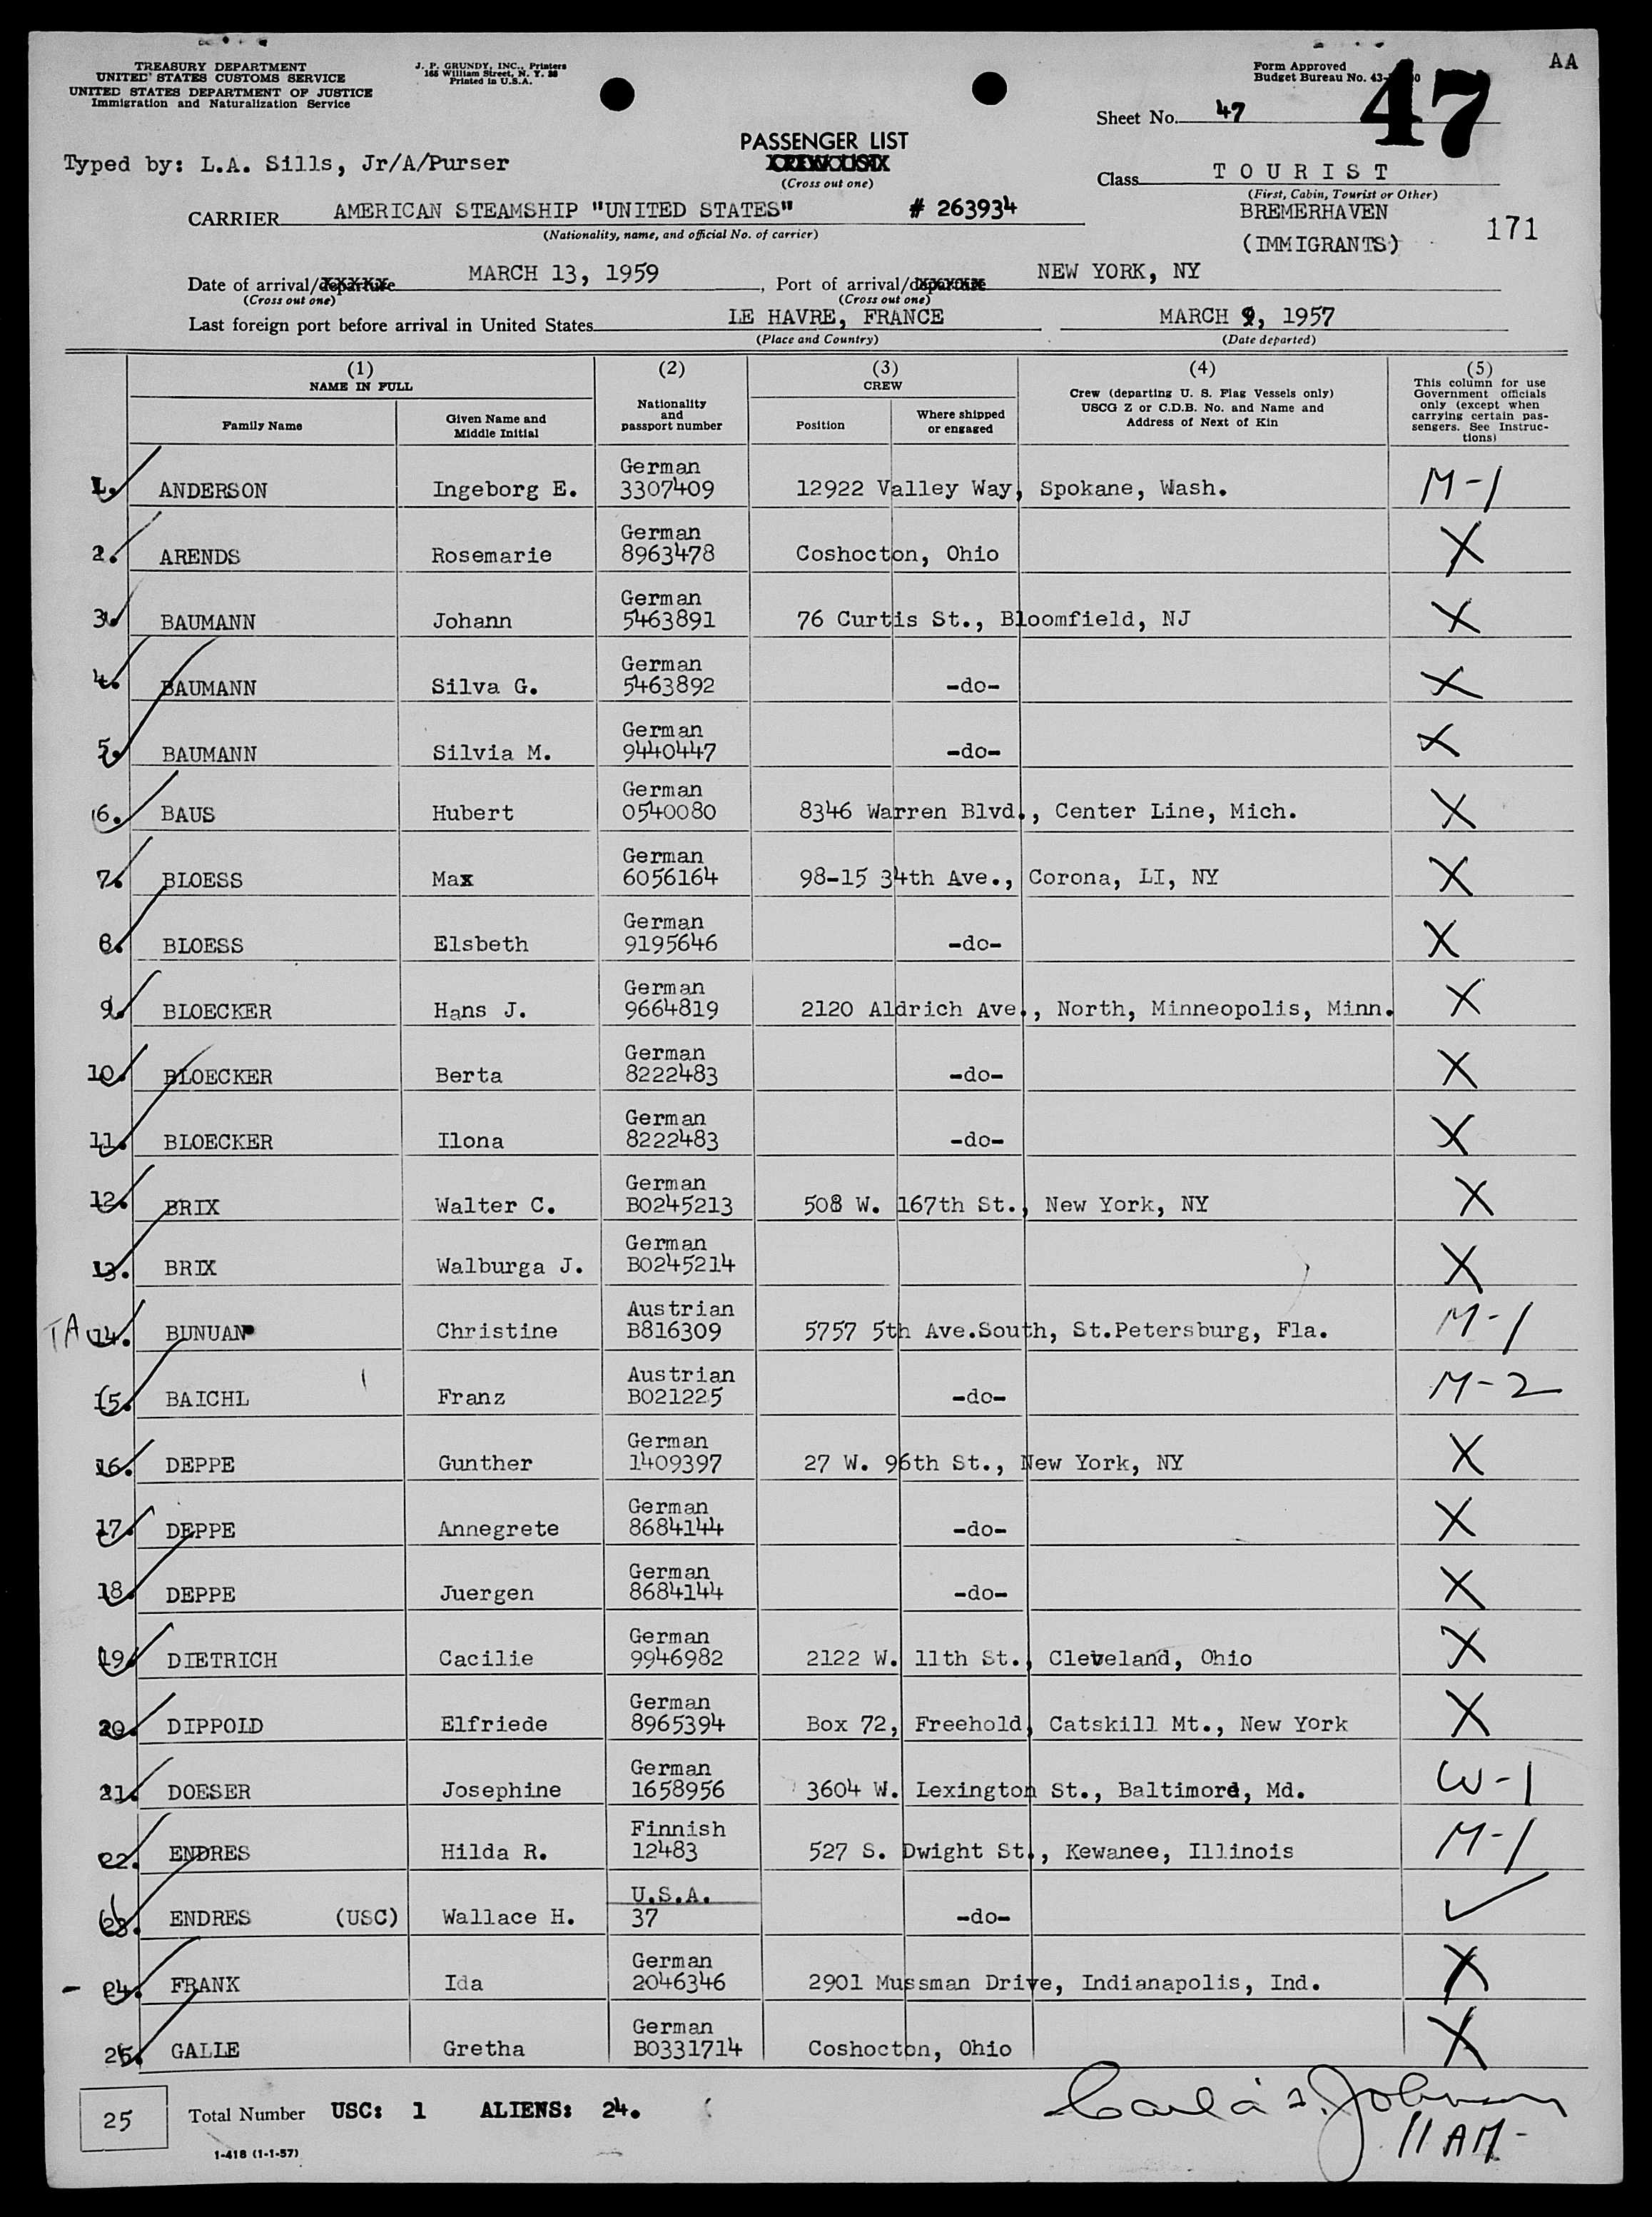 AA
TREASURY DEPARTMENT
UNITED STATES CUSTOMS SERVICE
UNITED STATES DEPARTMENT OF JUSTICE
Immigration and Naturalization Service
J. P. GRUNDY, INC., Printers
165 William Street, N. Y. 38
Printed in U.S.A.
Form Approved
Budget Bureau No. 43-
47
Sheet No. 47
PASSENGER LIST
CREW LIST
(Cross out one)
Typed by: L.A. Sills, Jr/A/Purser
Class TOURIST
(First, Cabin, Tourist or Other)
CARRIER AMERICAN STEAMSHIP "UNITED STATES" # 263934
(Nationality, name, and official No. of carrier)
BREMERHAVEN
(IMMIGRANTS)
171
Date of arrival/departure MARCH 13, 1959, Port of arrival/departure NEW YORK, NY
(Cross out one) (Cross out one)
Last foreign port before arrival in United States LE HAVRE, FRANCE MARCH 9, 1957
(Place and Country) (Date departed)
(1) (2) (3) (4) (5)
NAME IN FULL
Family Name
Given Name and
Middle Initial
Nationality
and
passport number
CREW
Position
Where shipped
or engaged
Crew (departing U. S. Flag Vessels only)
USCG Z or C.D.B. No. and Name and
Address of Next of Kin
This column for use
Government officials
only (except when
carrying certain pas-
sengers. See Instruc-
tions)
German
1. ANDERSON Ingeborg E. 3307409 12922 Valley Way, Spokane, Wash. M-1
German
2. ARENDS Rosemarie 8963478 Coshocton, Ohio X
German
3. BAUMANN Johann 5463891 76 Curtis St., Bloomfield, NJ X
German
4. BAUMANN Silva G. 5463892 -do- X
German
5. BAUMANN Silvia M. 9440447 -do- X
German
6. BAUS Hubert 0540080 8346 Warren Blvd., Center Line, Mich. X
German
7. BLOESS Max 6056164 98-15 34th Ave., Corona, LI, NY X
German
8. BLOESS Elsbeth 9195646 -do- X
German
9. BLOECKER Hans J. 9664819 2120 Aldrich Ave., North, Minneopolis, Minn. X
German
10. BLOECKER Berta 8222483 -do- X
German
11. BLOECKER Ilona 8222483 -do- X
German
12. BRIX Walter C. B0245213 508 W. 167th St., New York, NY X
German
13. BRIX Walburga J. B0245214 X
Austrian
TA 14. BUNUAN Christine B816309 5757 5th Ave.South, St.Petersburg, Fla. M-1
Austrian
15. BAICHL Franz B021225 -do- M-2
German
16. DEPPE Gunther 1409397 27 W. 96th St., New York, NY X
German
17. DEPPE Annegrete 8684144 -do- X
German
18. DEPPE Juergen 8684144 -do- X
German
19. DIETRICH Cacilie 9946982 2122 W. 11th St., Cleveland, Ohio X
German
20. DIPPOLD Elfriede 8965394 Box 72, Freehold, Catskill Mt., New York X
German
21. DOESER Josephine 1658956 3604 W. Lexington St., Baltimore, Md. W-1
Finnish
22. ENDRES Hilda R. 12483 527 S. Dwight St., Kewanee, Illinois M-1
U.S.A.
23. ENDRES (USC) Wallace H. 37 -do-
German
24. FRANK Ida 2046346 2901 Mussman Drive, Indianapolis, Ind. X
German
25. GALLE Gretha B0331714 Coshocton, Ohio X
25 Total Number USC: 1 ALIENS: 24.
Johnson
11 AM-
1-418 (1-1-57)